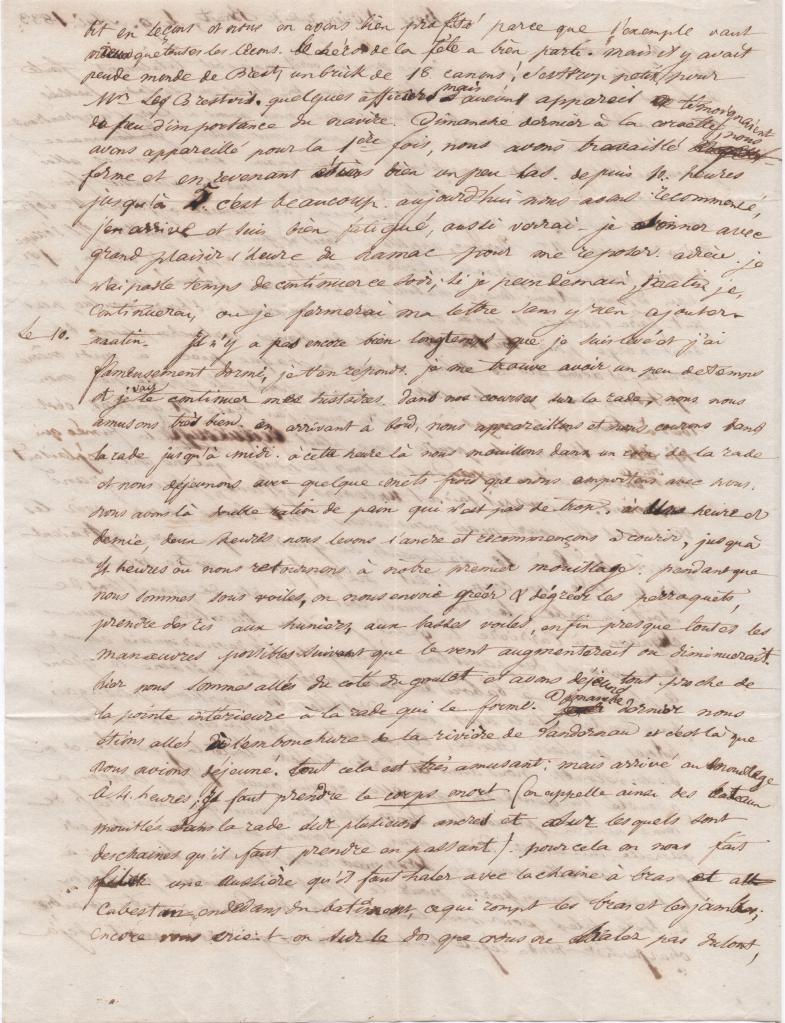 dit en leçons et nous en avons bien profité parce que l'exemple vaut
mieux que toutes les leçons. le héros de la fête a bien parlé. mais il y avait
peu de monde de Brest, un brick de 18 canons! c'est trop petit pour
Mrs Les Brestois. quelques officiers mais aucun appareil
de feu d'importance du navire. Dimanche dernier à la corvette, nous
avons appareillé pour la 1ère fois, nous avons travaillé
ferme et en revenant étions bien un peu las. depuis 10. heures
jusqu'à 5. c'est beaucoup. aujourd'hui nous avons recommencé,
j'en arrive et suis bien fatigué, aussi verrai-je sonner avec
grand plaisir l'heure du hamac pour me reposer. adieu. je
n'ai pas le temps de continuer ce soir; si je peux demain matin je,
continuerai, ou je fermerai ma lettre sans y rien ajouter
Le 10. matin. Il n'y a pas encore bien longtemps que je suis levé et j'ai
fameusement dormi, je t'en réponds. je me trouve avoir un peu de temps
et je vais te continuer mes histoires. dans nos courses sur la rade, nous nous
amusons très bien. en arrivant à bord, nous appareillons et nous courons dans
la rade jusqu'à midi. à cette heure là nous mouillons dans un coin de la rade
et nous déjeunons avec quelque mets froids que nous emportons avec nous.
nous avons là double ration de pain qui n'est pas de trop. à Une heure et
demie, deux heures nous levons l'ancre et recommençons à courir, jusqu'à
4 heures où nous retournons à notre premier mouillage. pendant que
nous sommes sous voiles, on nous envoie gréer & dégréer les perroquets,
prendre des ris aux huniers, aux basses voiles, enfin presque toutes les
manœuvres possibles suivant que le vent augmenterait ou diminuerait.
hier nous sommes allés du coté du goulet et avons déjeuné tout proche de
la pointe intérieure à la rade qui le forme. Dimanche dernier nous
étions allés à l'embouchure de la rivière de Landernau et c'est là que
nous avions déjeuné. tout cela est très amusant; mais arrivé au mouillage
à 4. heures, il faut prendre le corps mort (on appelle ainsi des bateaux
mouillés dans la rade sur plusieurs ancres et sur lesquels sont
des chaines qu'il faut prendre en passant). pour cela on nous fait
filer une aussière qu'il faut haler avec la chaine à bras et au
Cabestan, en dedans du batiment, ce qui rompt les bras et les jambes;
Encore vous crie-t-on sur le dos que vous ne halez pas du tout,